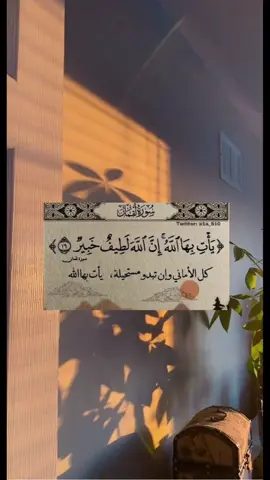 سورة لقمان
Twitter: a5a_510
﴿ يَأْتِ بِهَا ٱللَّهُ ۚ إِنَّ ٱللَّهَ لَطِيفٌ خَبِيرٌ ١٦ ﴾
سورة لقمان
كل الأماني وإن تبدو مستحيلة، يأت بها الله